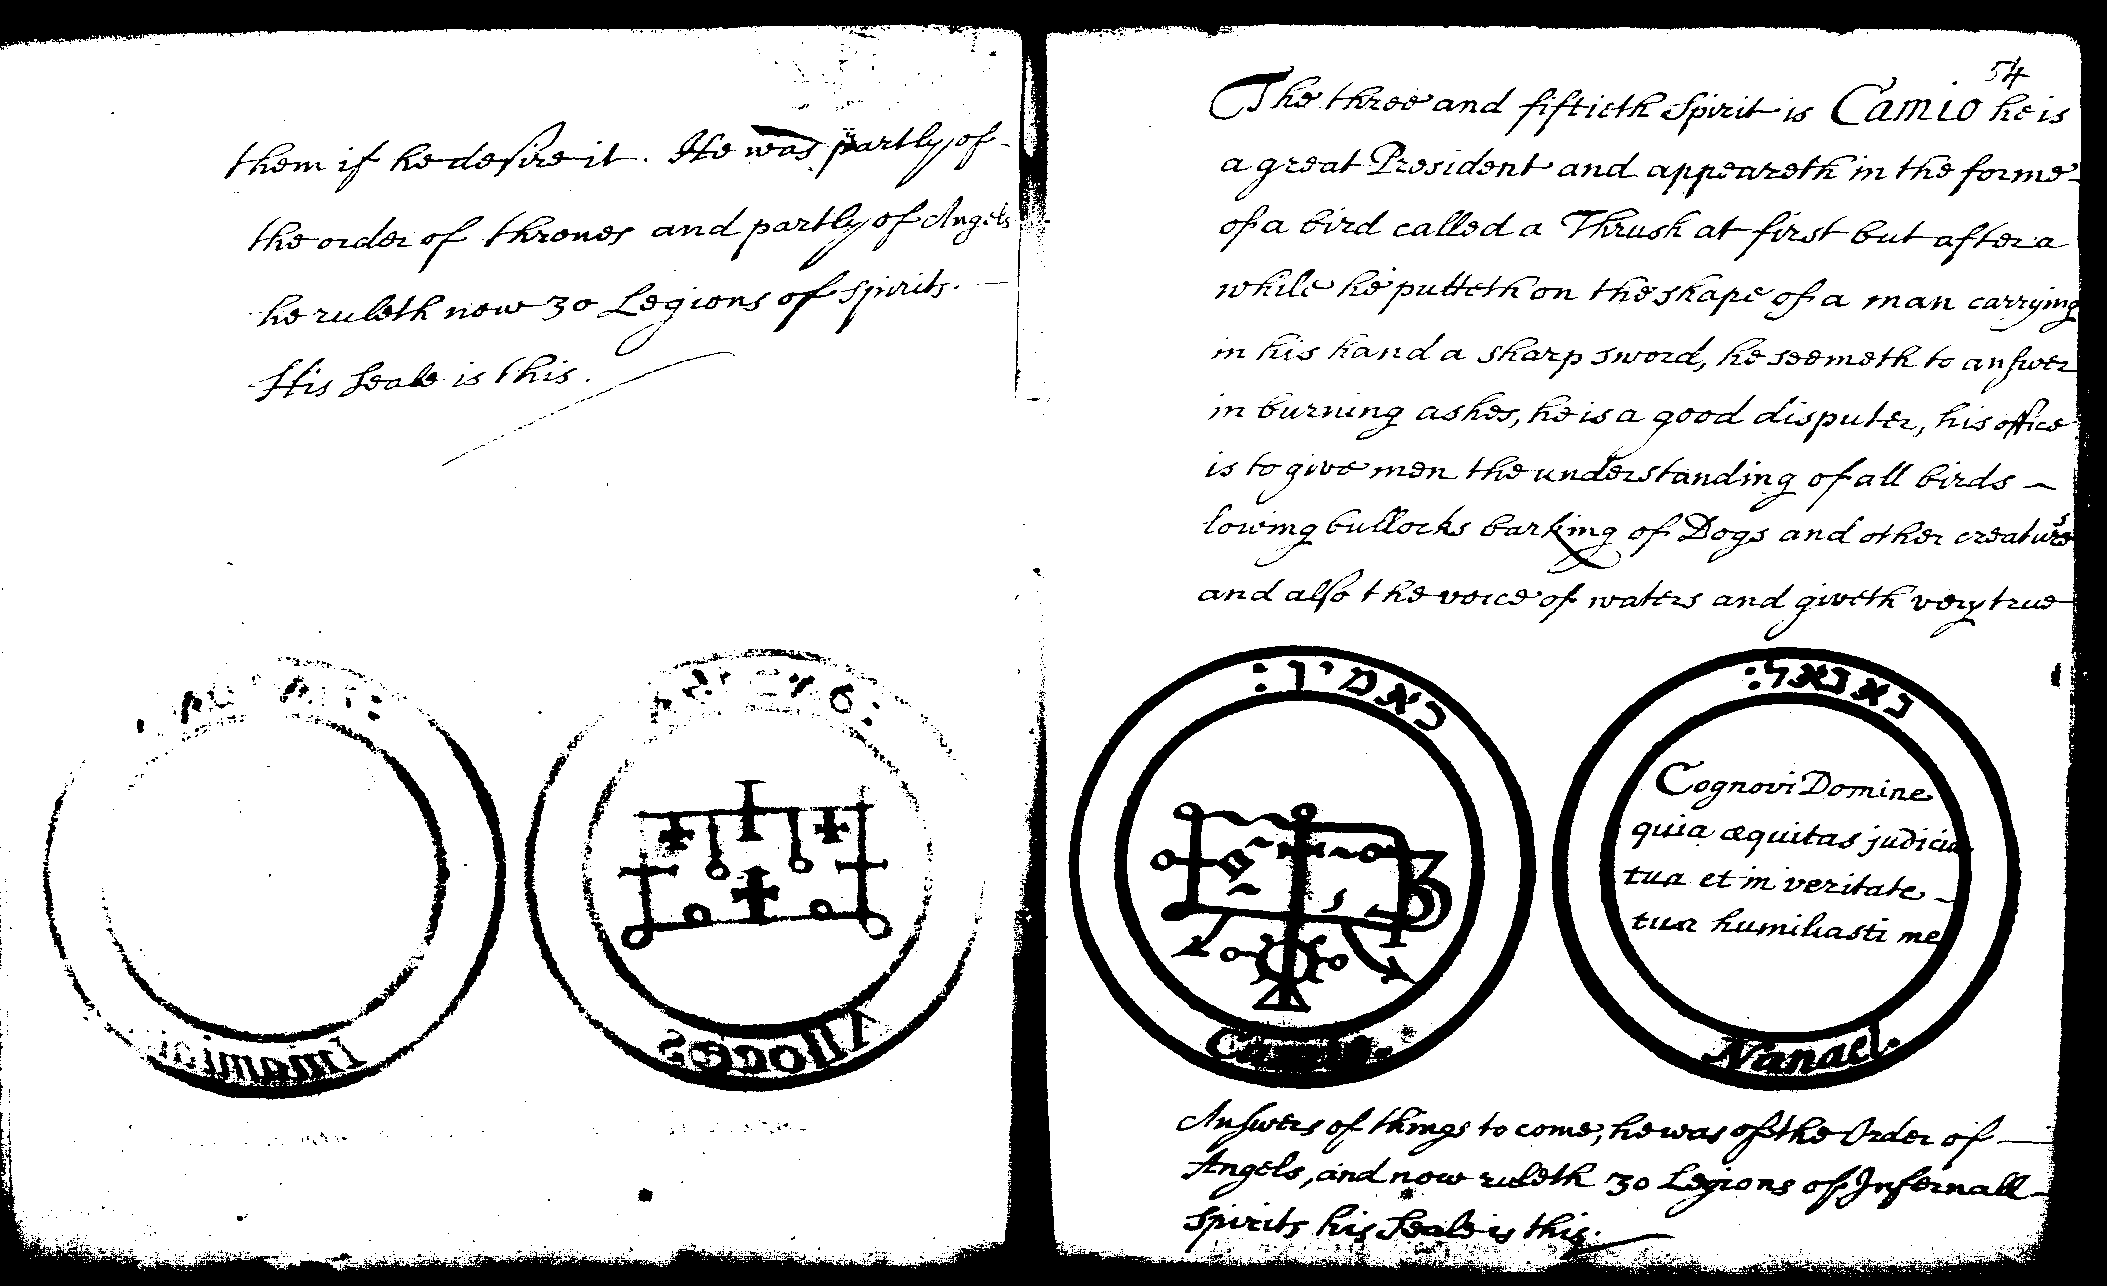 them if he desire it. He was partly of
the order of thrones and partly of Angels
he ruleth now 30 Legions of spirits.
His Seale is this.
54
The three and fiftieth Spirit is Camio he is
a great President and appeareth in the forme
of a bird called a Thrush at first but after a
while he putteth on the shape of a man carrying
in his hand a sharp sword, he seemeth to answer
in burning ashes, he is a good disputer, his office
is to give men the understanding of all birds
lowing bullocks barking of Dogs and other creatures
and also the voice of waters and giveth very true
כאמיו:
Camio.
נאנאל:
Cognovi Domine
quia æquitas judicia
tua et in veritate
tua humiliasti me
Nanael.
Answers of things to come, he was of the Order of
Angels, and now ruleth 30 Legions of Infernall
spirits his Seale is this.
Alloces